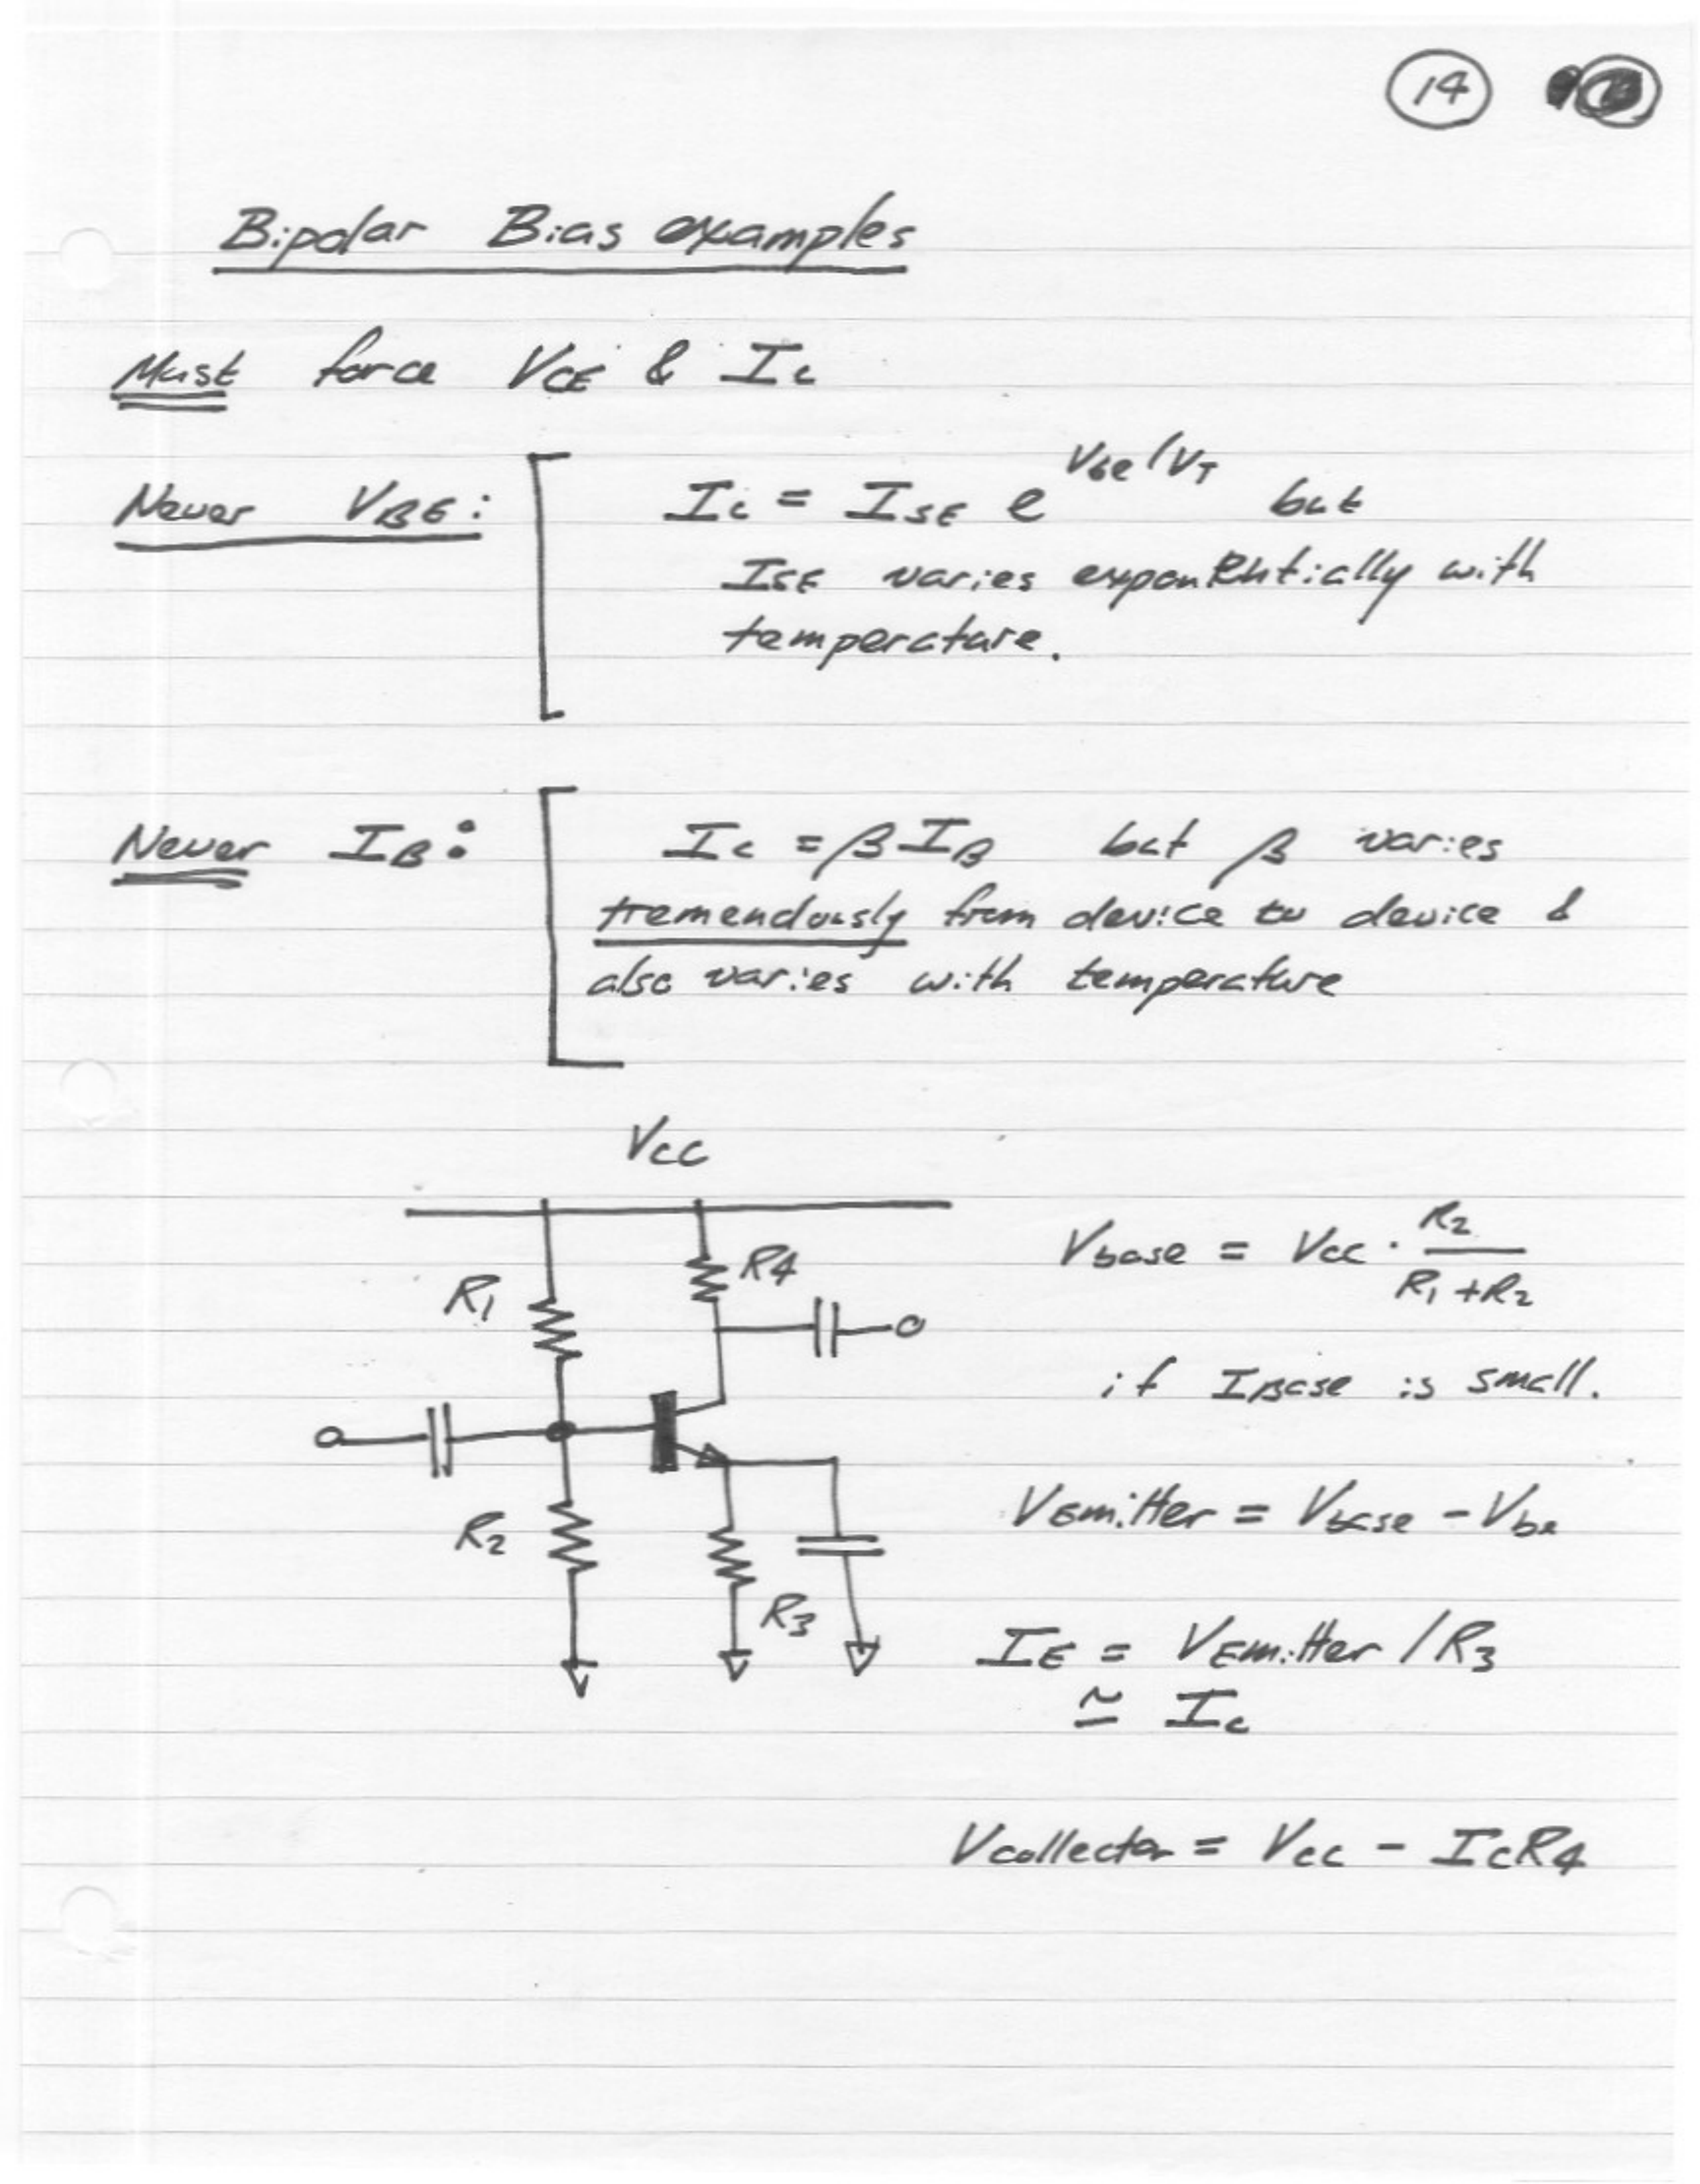 14
Bipolar Bias examples
Must force VCE & Ic
Never VBE: Ic = ISE e^Vbe/VT but
ISE varies exponentially with
temperature.
Never IB: Ic = βIB but β varies
tremendously from device to device &
also varies with temperature
Vcc
R1
R4
R2
R3
Vbase = Vcc · R2 / R1 + R2
if IBase is small.
VEmitter = Vbase - Vbe
IE = VEmitter / R3
≃ Ic
Vcollector = Vcc - IcR4